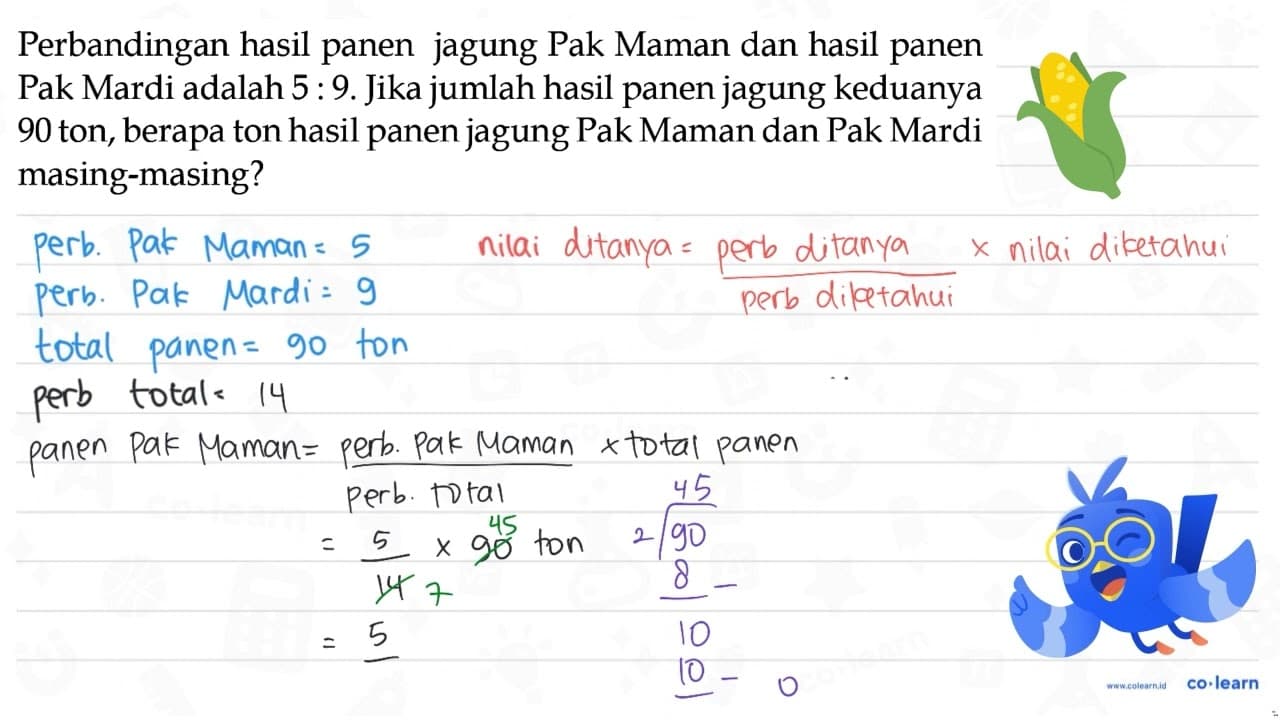 Perbandingan hasil panen jagung Pak Maman dan hasil panen
Pak Mardi adalah 5 : 9. Jika jumlah hasil panen jagung keduanya
90 ton, berapa ton hasil panen jagung Pak Maman dan Pak Mardi
masing-masing?
perb. Pak Maman = 5
perb. Pak Mardi = 9
total panen = 90 ton
perb total = 14
nilai ditanya = perb ditanya × nilai diketahui
perb diketahui
panen Pak Maman = perb. Pak Maman × total panen
perb. total
45
= 5 × 90 ton
14 7
= 5
45
2 90
8 -
10
10 - 0
www.colearn.id co·learn